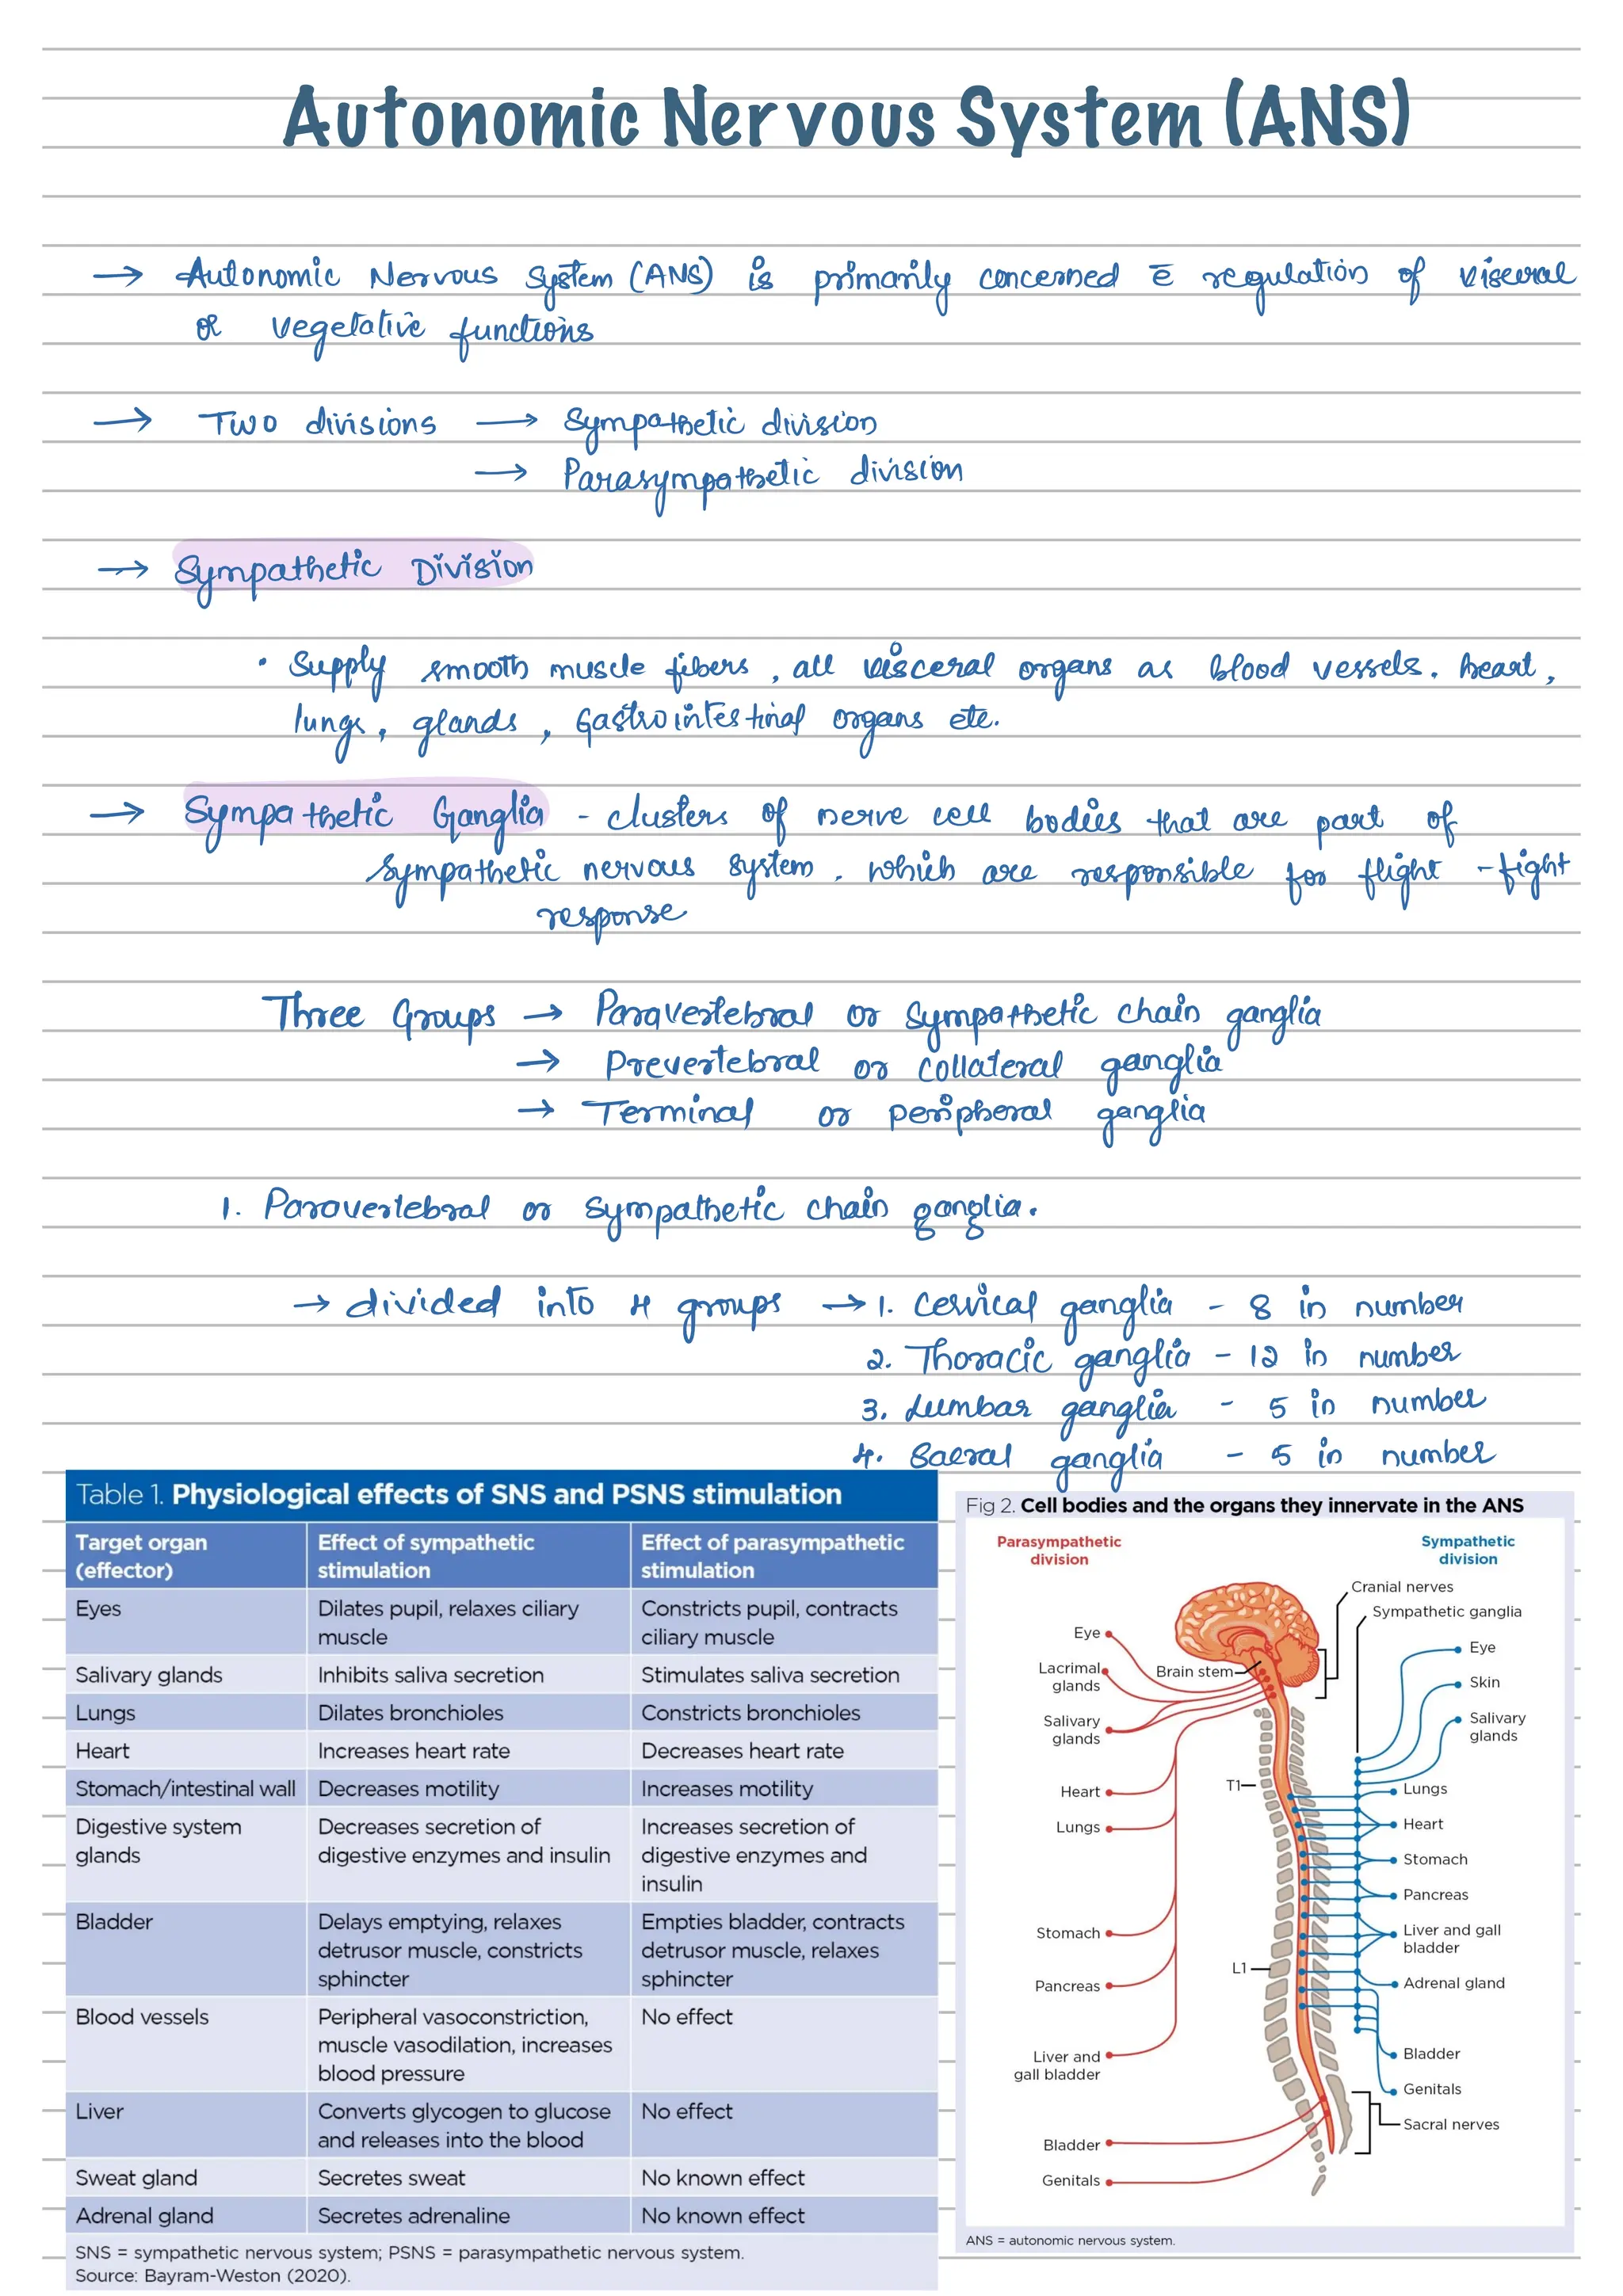 Autonomic Nervous System (ANS)
→ Autonomic Nervous System (ANS) is primarily concerned c̄ regulation of visceral
or vegetative functions
→ Two divisions → Sympathetic division
→ Parasympathetic division
→ Sympathetic Division
• Supply smooth muscle fibers, all visceral organs as blood vessels, heart,
lungs, glands, Gastrointestinal organs etc.
→ Sympathetic Ganglia - clusters of nerve cell bodies that are part of
sympathetic nervous system, which are responsible for flight - fight
response
Three Groups → Paravertebral or Sympathetic chain ganglia
→ Prevertebral or collateral ganglia
→ Terminal or peripheral ganglia
1. Paravertebral or Sympathetic chain ganglia.
→ divided into 4 groups → 1. Cervical ganglia - 8 in number
2. Thoracic ganglia - 12 in number
3. Lumbar ganglia - 5 in number
4. Sacral ganglia - 5 in number
Table 1. Physiological effects of SNS and PSNS stimulation
Target organ (effector) Effect of sympathetic stimulation Effect of parasympathetic stimulation
Eyes Dilates pupil, relaxes ciliary muscle Constricts pupil, contracts ciliary muscle
Salivary glands Inhibits saliva secretion Stimulates saliva secretion
Lungs Dilates bronchioles Constricts bronchioles
Heart Increases heart rate Decreases heart rate
Stomach/intestinal wall Decreases motility Increases motility
Digestive system glands Decreases secretion of digestive enzymes and insulin Increases secretion of digestive enzymes and insulin
Bladder Delays emptying, relaxes detrusor muscle, constricts sphincter Empties bladder, contracts detrusor muscle, relaxes sphincter
Blood vessels Peripheral vasoconstriction, muscle vasodilation, increases blood pressure No effect
Liver Converts glycogen to glucose and releases into the blood No effect
Sweat gland Secretes sweat No known effect
Adrenal gland Secretes adrenaline No known effect
SNS = sympathetic nervous system; PSNS = parasympathetic nervous system.
Source: Bayram-Weston (2020).
Fig 2. Cell bodies and the organs they innervate in the ANS
Parasympathetic
division
Sympathetic
division
Cranial nerves
Sympathetic ganglia
Eye
Lacrimal
glands
Brain stem
Salivary
glands
Heart
Lungs
Stomach
Pancreas
Liver and
gall bladder
Bladder
Genitals
T1
L1
Eye
Skin
Salivary
glands
Lungs
Heart
Stomach
Pancreas
Liver and gall
bladder
Adrenal gland
Bladder
Genitals
Sacral nerves
ANS = autonomic nervous system.